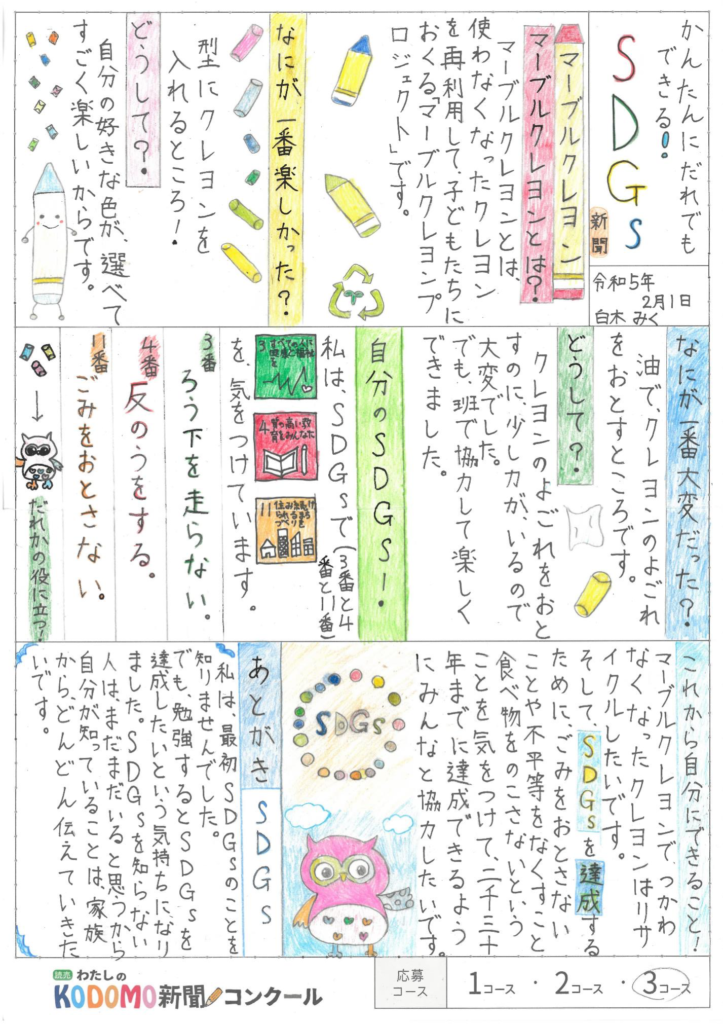 かんたんにだれでも
できる!
SDGs
新聞
令和5年
2月1日
白木 みく
マーブルクレヨン
マーブルクレヨンとは?
マーブルクレヨンとは、
使わなくなったクレヨン
を再利用して、子どもたちに
おくる「マーブルクレヨンプ
ロジェクト」です。
なにが一番楽しかった?
型にクレヨンを
入れるところ!
どうして?
自分の好きな色が、選べて
すごく楽しいからです。
なにが一番大変だった?
油で、クレヨンのよごれ
をおとすところです。
どうして?
クレヨンのよごれをおと
すのに、少し力が、いるので
大変でした。
でも、班で協力して楽しく
できました。
自分のSDGs!
私は、SDGsで(3番と4
番と11番)
3
4
11
を、気をつけています。
3番
ろう下を走らない。
4番
反のうをする。
11番
ごみをおとさない。
→
だれかの役に立つ?
これから自分にできること!
マーブルクレヨンでつかわ
なくなったクレヨンはリサ
イクルしたいです。
そして、SDGsを達成する
ために、ごみをおとさない
ことや不平等をなくすこと
食べ物をのこさないという
ことを気をつけて、二千三十
年までに達成できるよう
にみんなと協力したいです。
SDGs
あとがき SDGs
私は、最初SDGsのことを
知りませんでした。
でも、勉強するとSDGsを
達成したいという気持ちになり
ました。SDGsを知らない
人は、まだまだいると思うから
自分が知っていることは、家族
から、どんどん伝えていきた
いです。
読売 わたしの
KODOMO新聞コンクール
応募
コース
1コース・2コース・3コース